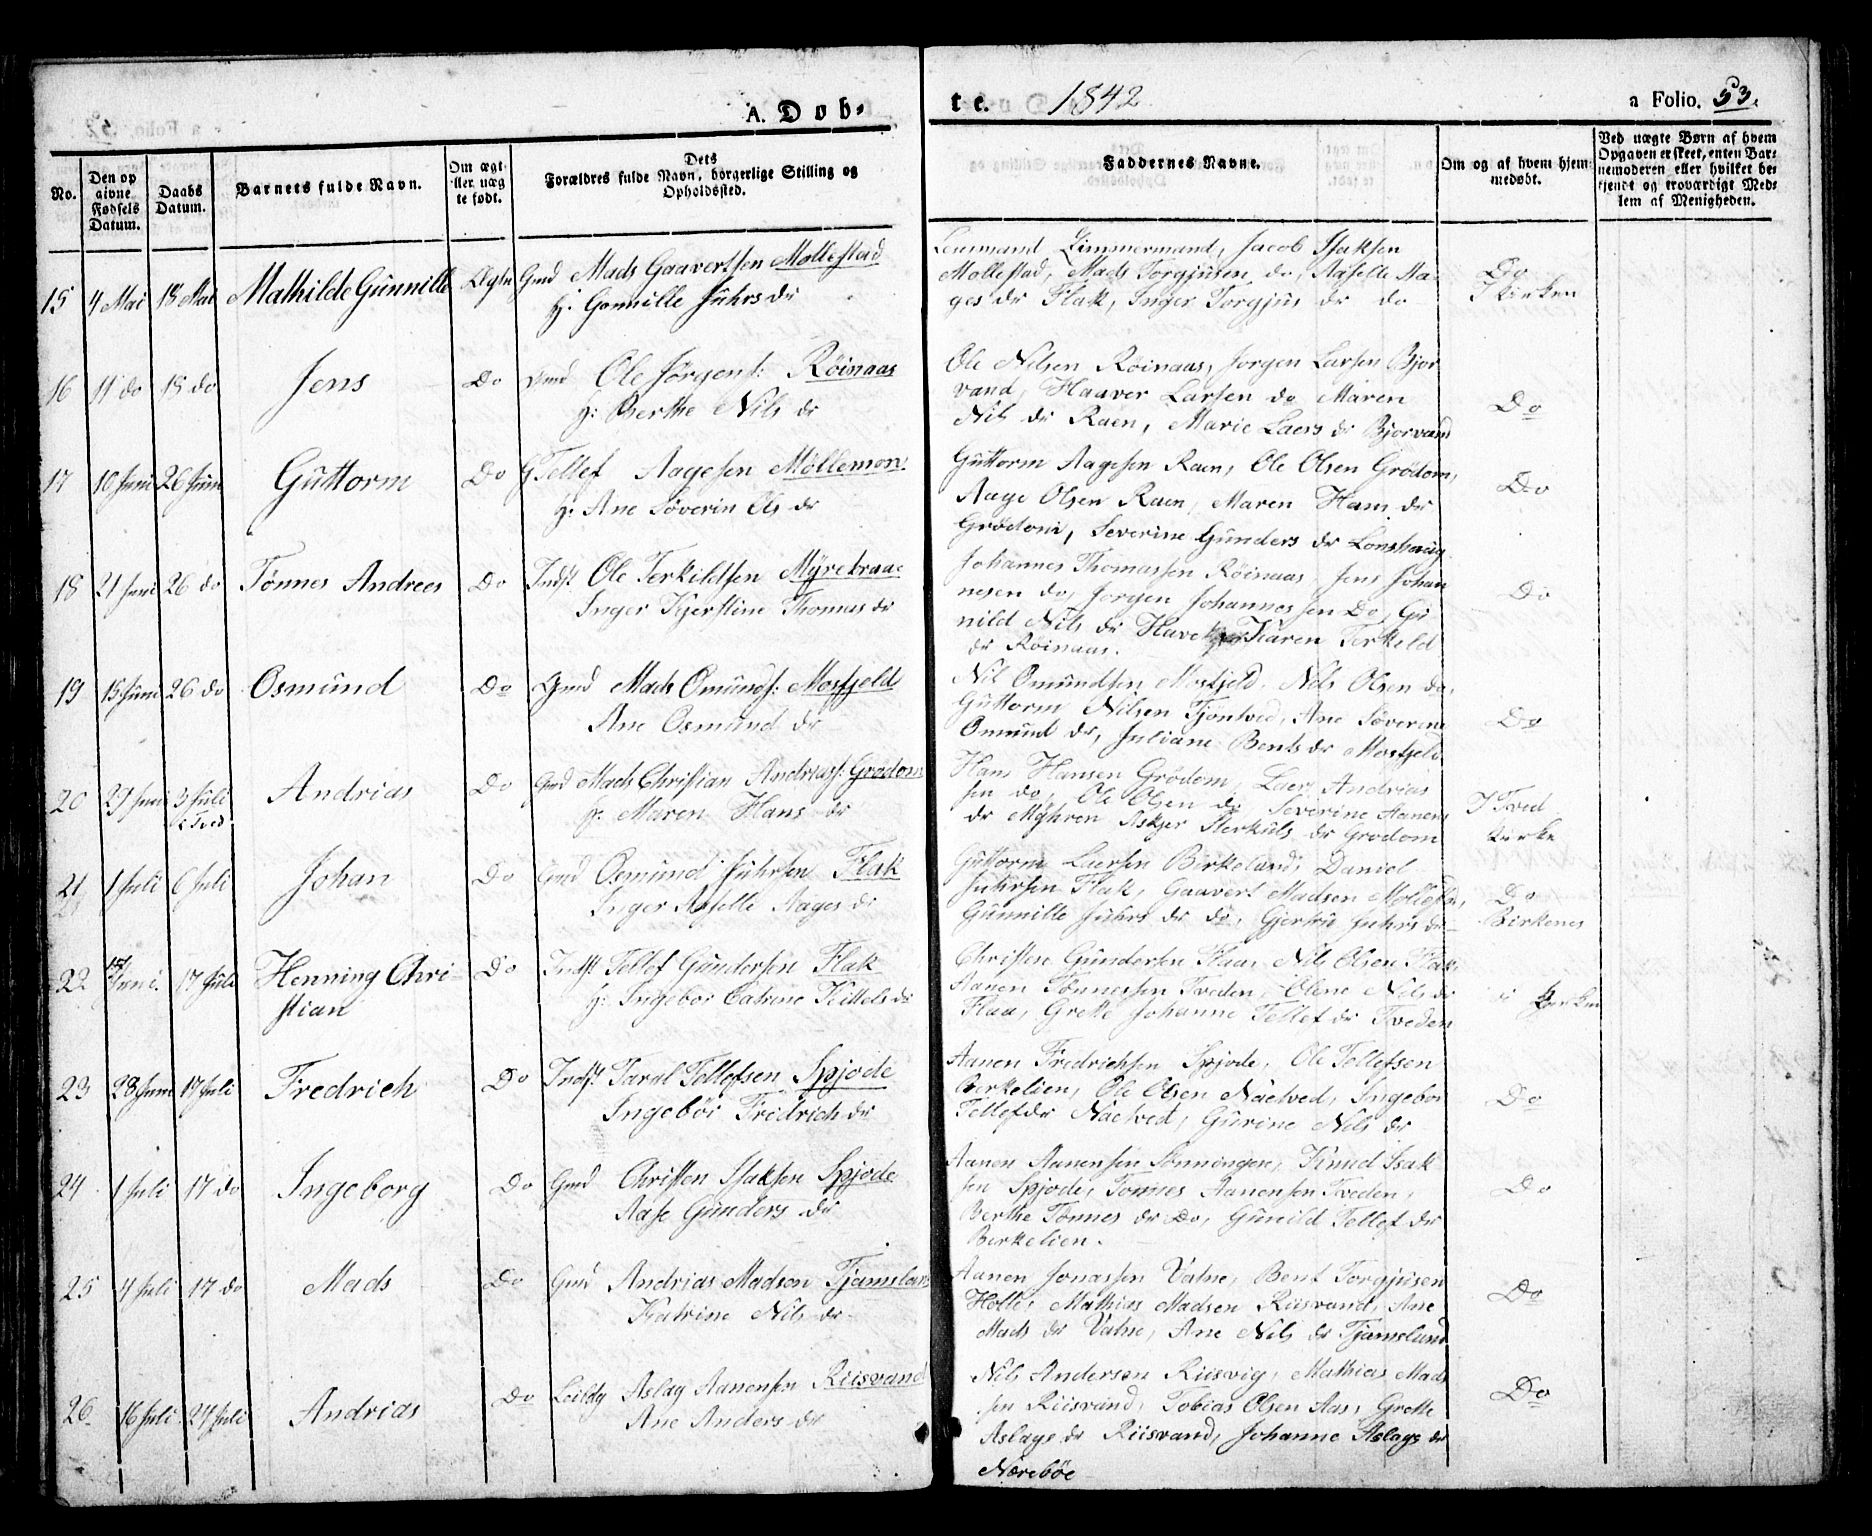 A. Døb-
te. 1842.
a Folio. 53.
No.
Den op
givne
Fødsels
Datum.
Daabs
Datum.
Barnets fulde Navn.
Om ægt-
eller uæg
te født.
Dets
Forældres fulde Navn, borgerlige Stilling og
Opholdssted.
Faddernes Navne.
Om og af hvem hjem-
medøbt.
Ved uægte Børn af hvem
Opgaven er skeet, enten Bar-
nemoderen eller hvilket be-
kjendt og troværdigt Med-
lem af Menigheden.
15 4 Mai 18 Mai Mathilde Gunnille Ægte Gmd Mads Gaavertsen Mollestad
H: Gonnille Juhrs dr
Zimmermand, Jacob Isaksen
Mollestad, Mads Torgjusen do, Aaselle Aa-
ges dr Flak, Inger Torgjus dr do
Do
I Kirken
16 11 do 15 do Jens Do Gmd Ole Jørgens: Røinaas
H: Berthe Nils dr
Ole Nilsen Røinaas, Jørgen Larsen Bjor
vand, Haaver Larsen do Maren
Nils dr Raen, Marie Laers dr Bjorvand
Do
17 10 Juni 26 Juni Guttorm Do G. Tellef Aagesen Möllemon:
H: Ane Söverin Ols dr
Guttorm Aagesen Raen, Ole Olsen Grödom,
Aage Olsen Raen, Maren Hans dr
Grödom, Severine Gunders dr
Do
18 21 Juni 26 do Tönnes Andreas Do Indst Ole Terkildsen Myrebraae
Inger Kjerstine Thomas dr
Johannes Thomassen Röinaas, Jens Johan
nesen do, Jorgen Johannessen Do, Gu
nild Nils dr Karen Terkild
dr Röinaas.
Do
19 15 Juni 26 do Osmund Do Gmd Mads Omunds: Mosfjeld
Ane Osmund dr
Nil Omundsen Mosfjeld, Nils Olsen do,
Guttorm Nilsen Tjöntved, Ane Söverine
Omund dr, Juliane Bents dr Mosfjeld
Do
20 27 Juni 3 Juli
i Tved
Andrias Do Gmd Mads Christian Andrias: Grödom
H: Maren Hans dr
Hans Hansen Grödom, Laers Andrias
sen do, Ole Olsen do Severine Aanens
dr Myhren Askjer Sterkuls dr Grodom
I Tved
Kirke
21 1 Juli 6 Juli Johan Do Gmd Osmund Juhrsen Flak
Inger Aaselle Aages dr
Guttorm Laersen Birkeland, Daniel
Juhrsen Flak, Gaavert Madsen Mollestd,
Gunnille Juhrs dr do, Gjertru Juhrs dr
Do
Birkenes
22 15/Juni. 17 Juli Henning Chri-
stian
Do Indst Tellef Gundersen Flak
H: Ingebor Catrine Kittels dr
Christen Gundersen Flaa, Nils Olsen Flak,
Aanen Tönnessen Tveden, Olene Nils dr
Flaa, Grethe Johanne Tellef dr Tveden
i Kirken
23 28 Juni 17 Juli Fredrich Do Indst Taral Tellefsen Spjode
Ingebör Fredrich dr
Aanen Fredrichsen Spjode, Ole Tellefsen
Berkelien, Ole Olsen Naetved, Ingebor
Tellef dr Naetved, Gurine Nils dr
Do
24 1 Juli 17 do Ingeborg Do Gmd Christen Isaksen Spjode
Aase Gunders dr
Aanen Aanensen Sonningen, Knud Isak
sen Spjode, Tönnes Aanensen Tveden,
Berthe Tönnes dr Do, Gunild Tellef dr
Berkelien.
Do
25 4 Juli 17 do Mads Do Gmd Andrias Madsen Tjamsland
Katrine Nils dr
Aanen Jonassen Vatne, Bent Torgjusen
Holte, Mathias Madsen Riisvand, Ane
Mads dr Vatne, Ane Nils dr Tjamsland
Do
26 16 Juli 24 Juli Andrias Do Leildg Aslag Aanensen Riisvand
Ane Anders dr
Nils Andersen Riisvig, Mathias Mad
sen Riisvand, Tobias Olsen Aas, Grethe
Aslags dr Riisvand, Johanne Aslags dr
Nærebøe
Do